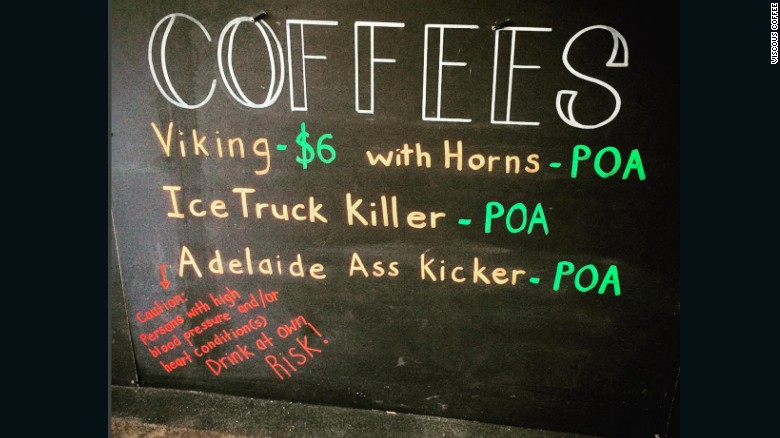 COFFEES
Viking - $6 with Horns - POA
Ice Truck Killer - POA
Adelaide Ass Kicker - POA
Caution:
Persons with high
blood pressure and/or
heart condition(s)
Drink at own
RISK!
VISCOUS COFFEE